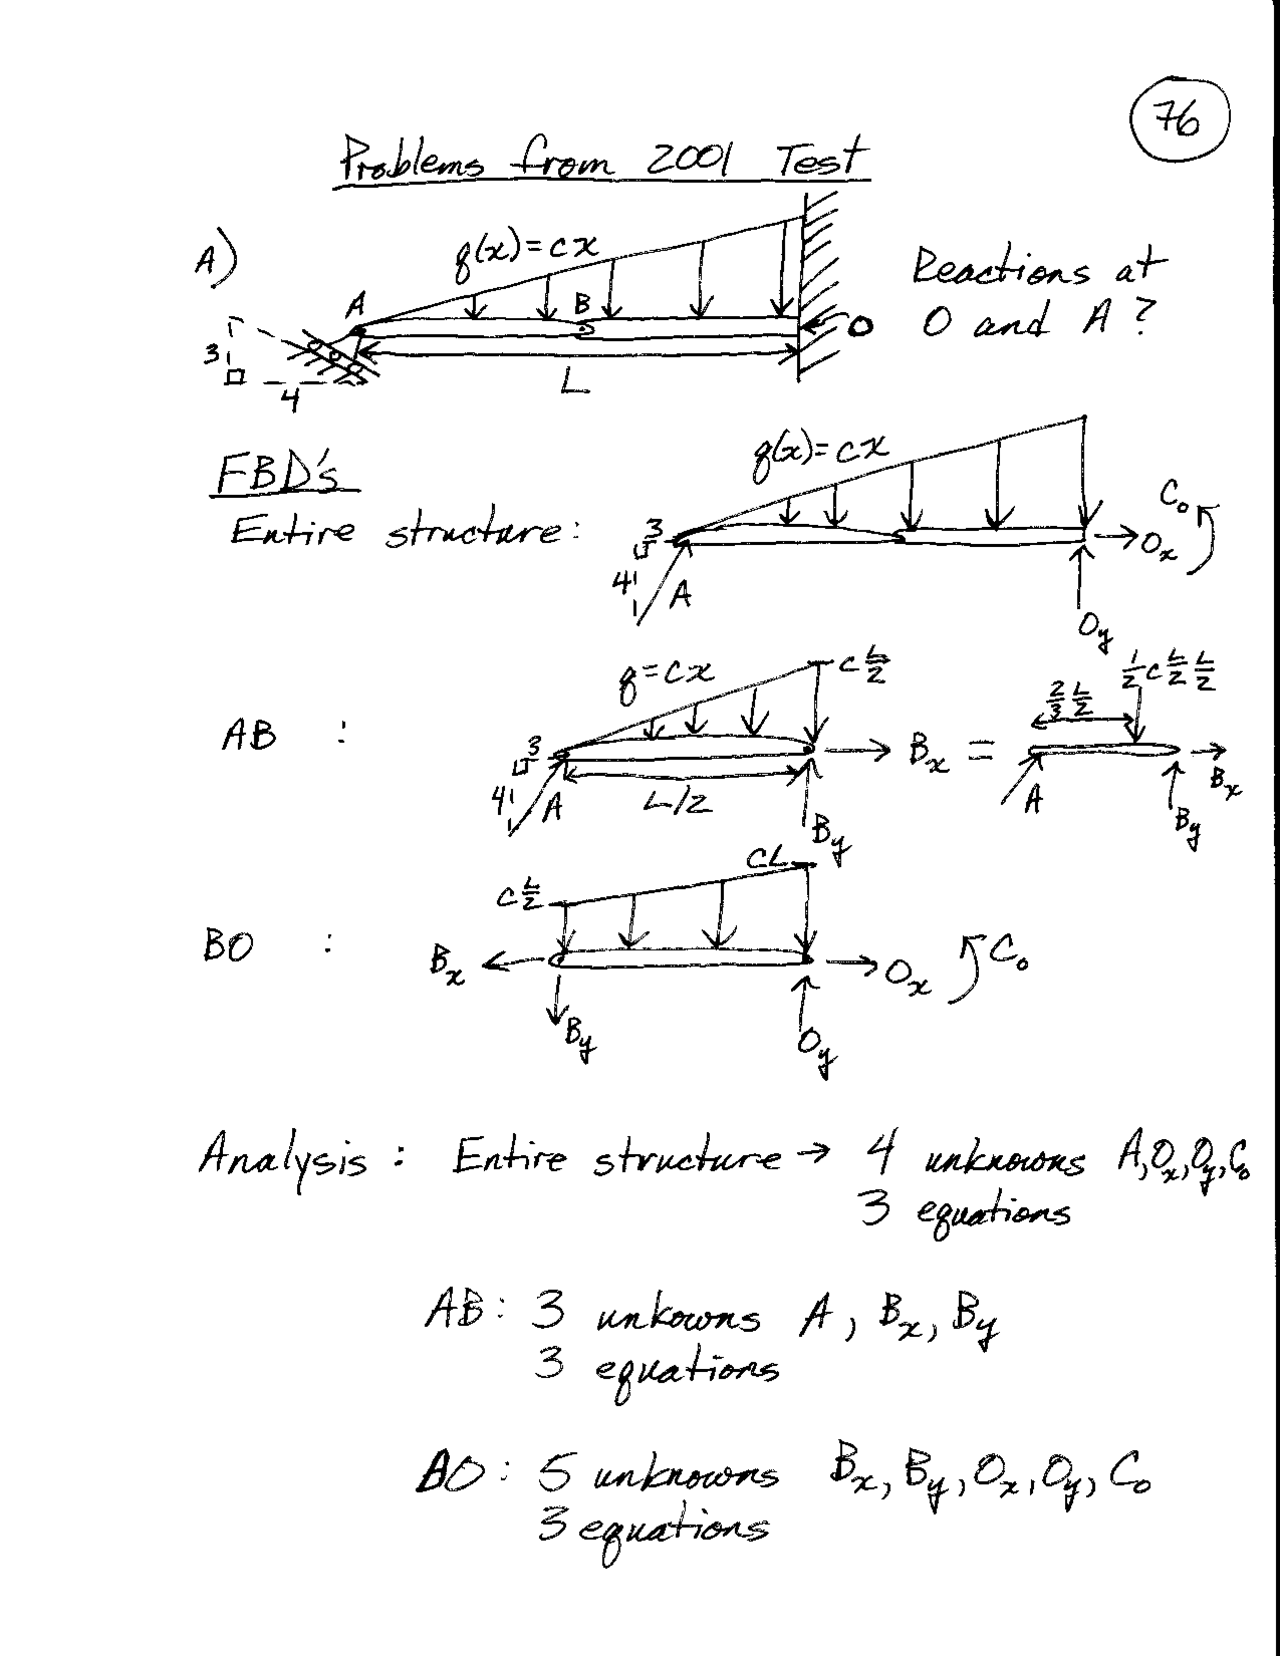 76
Problems from 2001 Test
A)
q(x)=cx
A
B
O
3
4
L
Reactions at
O and A?
FBD's
Entire structure:
q(x)=cx
3
4
A
Co
Ox
Oy
AB :
q=cx
c L/2
3
4
A
L/2
Bx
By
=
2/3 L/2
1/2 c L/2 L/2
A
Bx
By
BO :
c L/2
cL
Bx
By
Ox
Oy
Co
Analysis: Entire structure → 4 unknowns A, Ox, Oy, Co
3 equations
AB: 3 unkowns A, Bx, By
3 equations
BO: 5 unknowns Bx, By, Ox, Oy, Co
3 equations